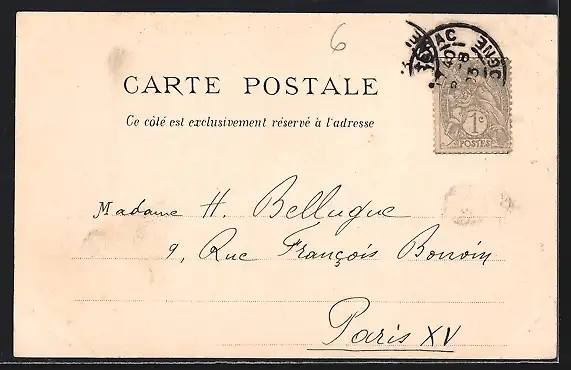 6
CARTE POSTALE
Ce côté est exclusivement réservé à l'adresse
1c
POSTES
Madame H. Bellugue
9, Rue François Bonvin
Paris XV